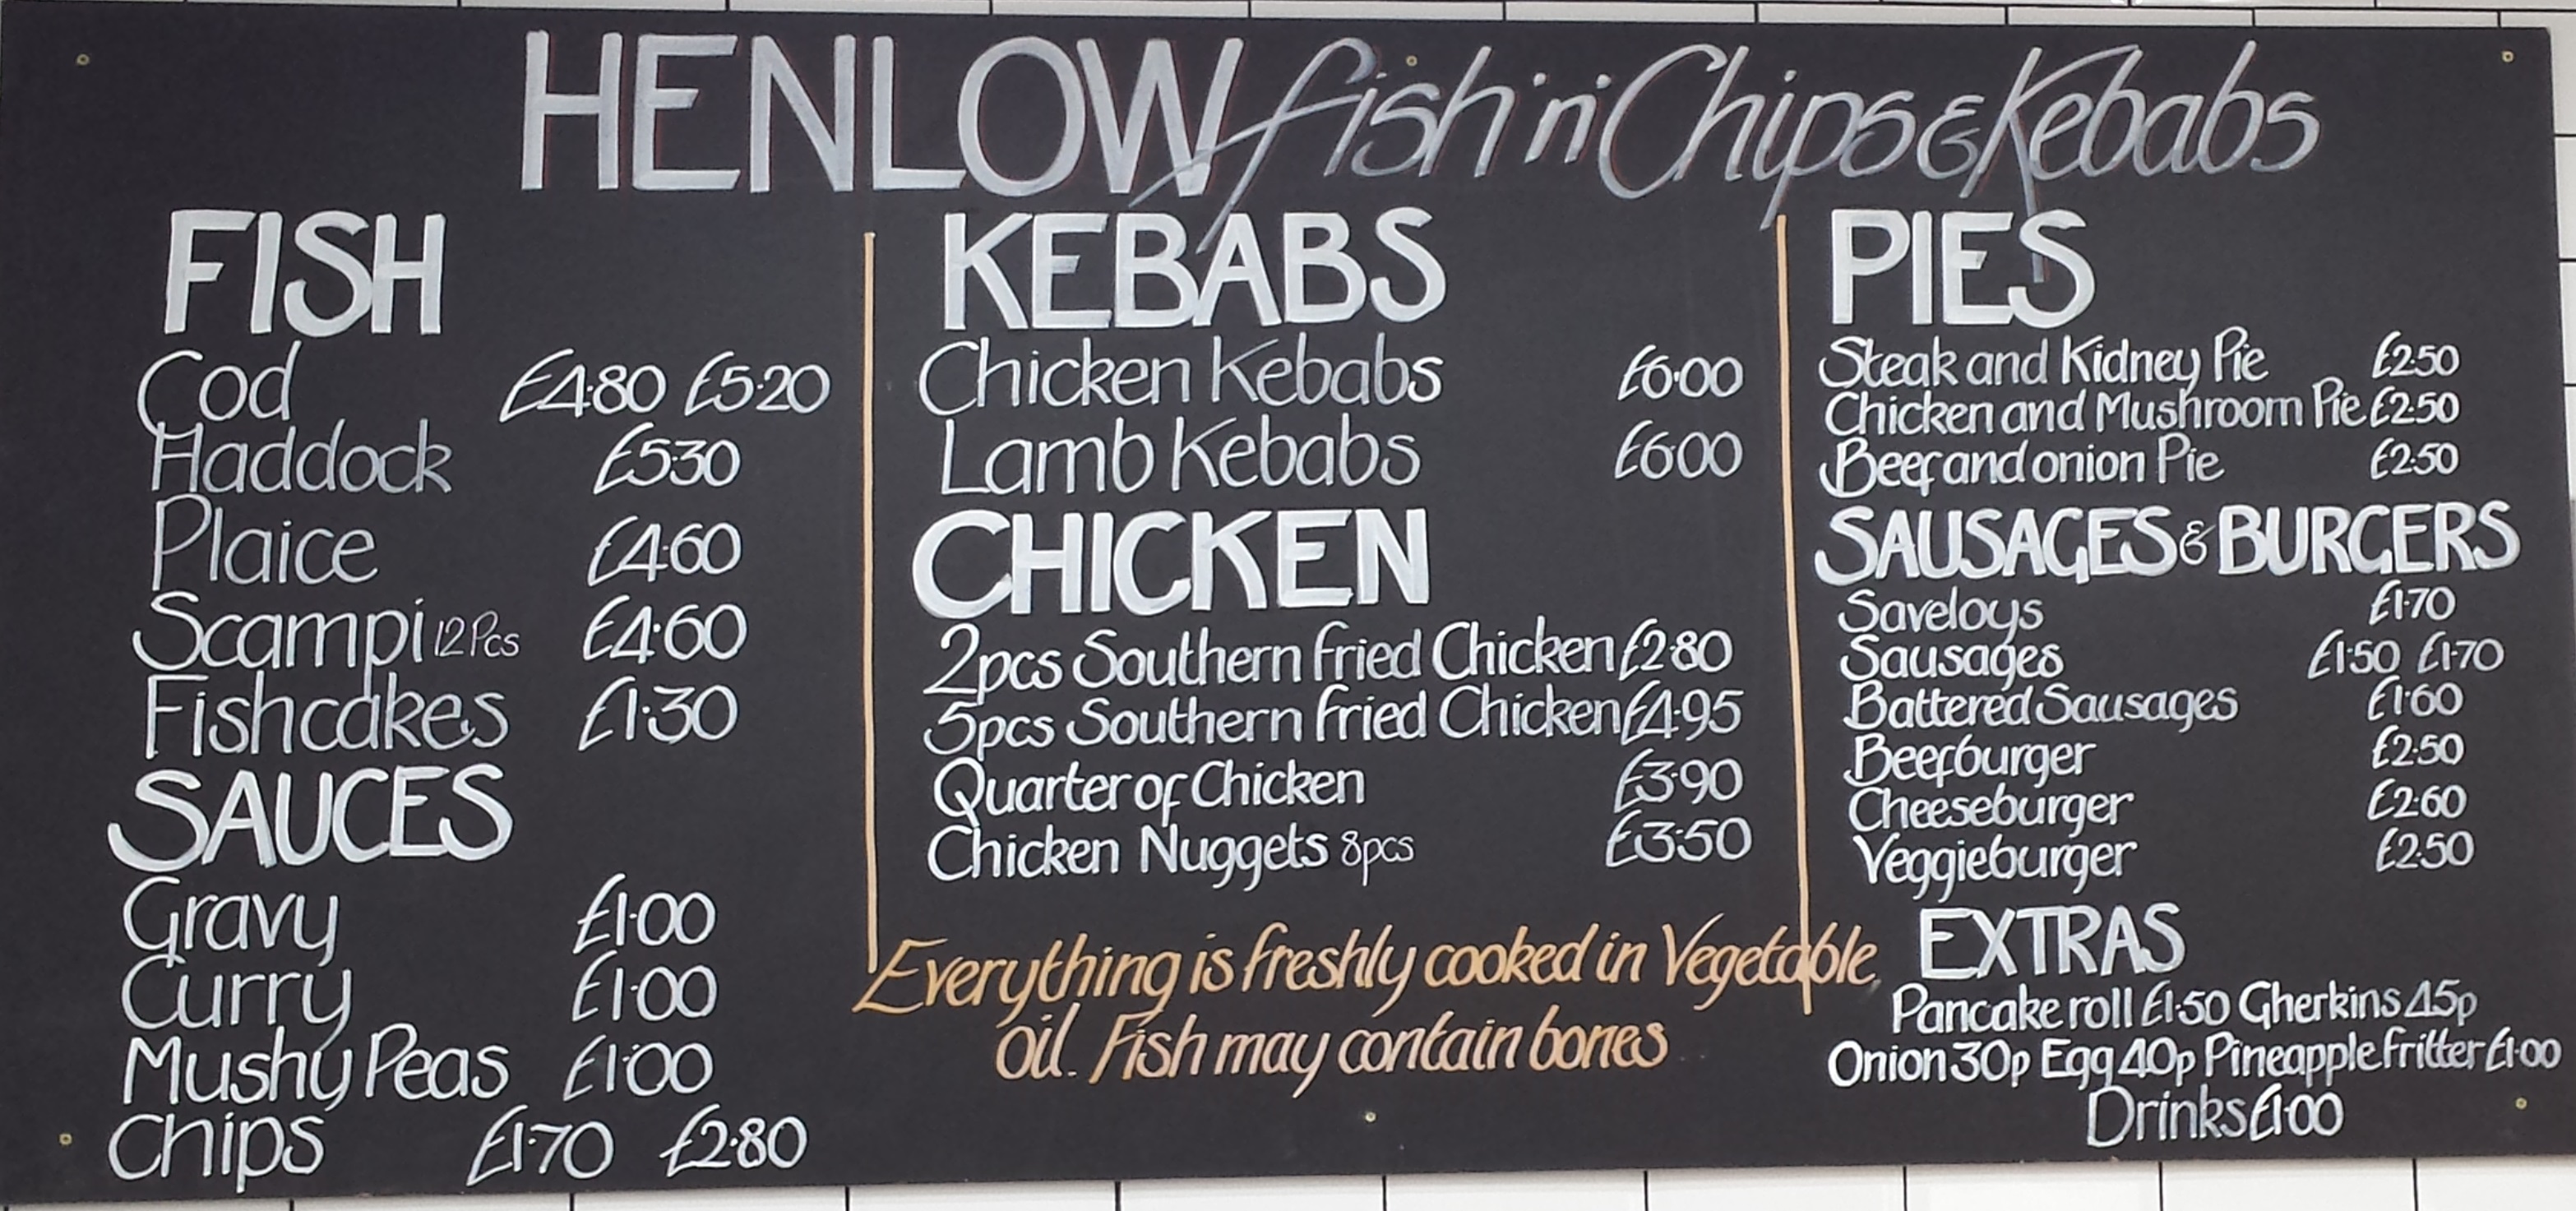 HENLOW fish 'n' Chips & Kebabs
FISH
Cod £4·80 £5·20
Haddock £5·30
Plaice £4·60
Scampi 12 Pcs £4·60
Fishcakes £1·30
SAUCES
Gravy £1·00
Curry £1·00
Mushy Peas £1·00
Chips £1·70 £2·80
KEBABS
Chicken Kebabs £6·00
Lamb Kebabs £6·00
CHICKEN
2pcs Southern Fried Chicken £2·80
5pcs Southern Fried Chicken £4·95
Quarter of Chicken £3·90
Chicken Nuggets 8pcs £3·50
Everything is freshly cooked in Vegetable
oil. Fish may contain bones
PIES
Steak and Kidney Pie £2·50
Chicken and Mushroom Pie £2·50
Beef and onion Pie £2·50
SAUSAGES & BURGERS
Saveloys £1·70
Sausages £1·50 £1·70
Battered Sausages £1·60
Beefburger £2·50
Cheeseburger £2·60
Veggieburger £2·50
EXTRAS
Pancake roll £1·50 Gherkins 45p
Onion 30p Egg 40p Pineapple Fritter £1·00
Drinks £1·00